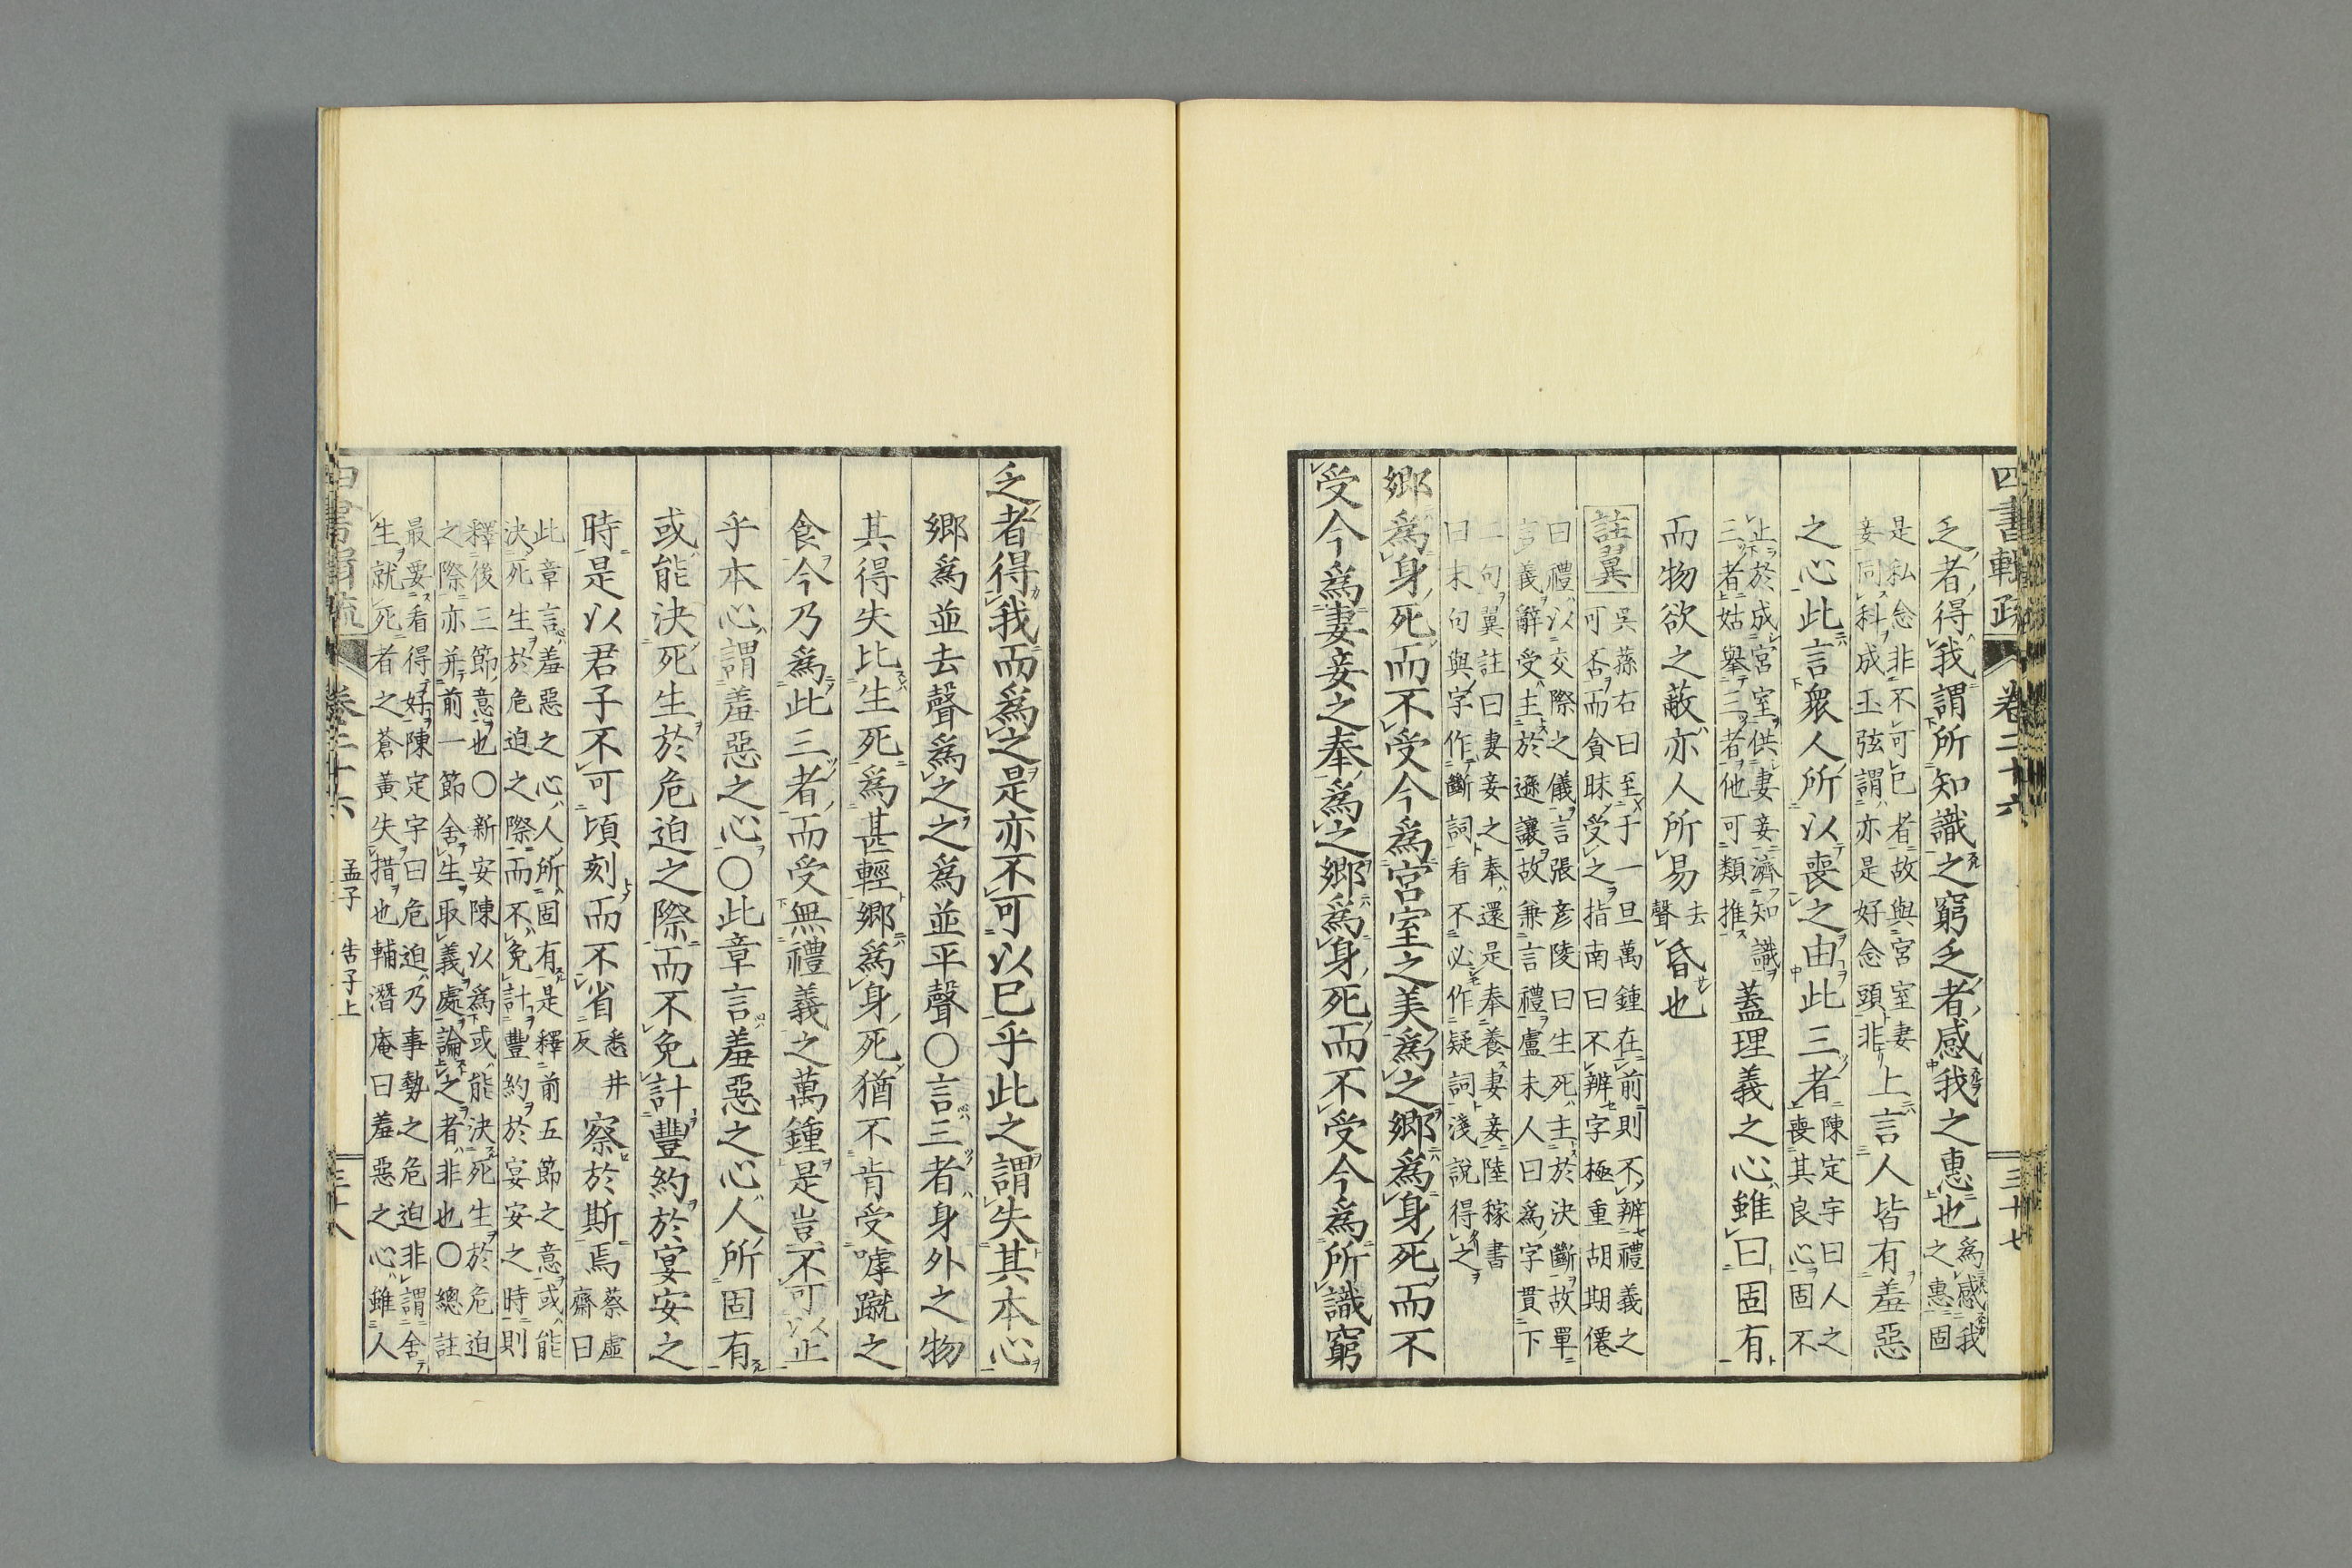 四書輯疏 卷二十六 三十七
乏者得我謂所知識之窮乏者感我之惠也爲感我
之惠固
是私念非不可已者故與宮室妻
妾同科成玉弦謂亦是好念頭非上言人皆有羞惡
之心此言衆人所以喪之由此三者陳定宇曰人之
喪其良心固不
止於成宮室供妻妾濟知識
三者姑舉三者他可類推蓋理義之心雖曰固有
而物欲之蔽亦人所易去
聲昏也
註翼吳蓀右曰至于一旦萬鍾在前則不辨禮義之
可否而貪昧受之指南曰不辨字極重胡期僊
曰禮以交際之儀言張彥陵曰生死主於決斷故單
言義辭受主於遜讓故兼言禮盧未人曰爲字貫下
一句翼註曰妻妾之奉還是奉養妻妾陸稼書
曰末句與字作斷詞看不必作疑詞淺說得之
鄉爲身死而不受今爲宮室之美爲之鄉爲身死而不
受今爲妻妾之奉爲之鄉爲身死而不受今爲所識窮
乏者得我而爲之是亦不可以已乎此之謂失其本心
鄉爲並去聲爲之之爲並平聲〇言三者身外之物
其得失比生死爲甚輕鄉爲身死猶不肯受嘑蹴之
食今乃爲此三者而受無禮義之萬鍾是豈不可以止
乎本心謂羞惡之心〇此章言羞惡之心人所固有
或能決死生於危迫之際而不免計豐約於宴安之
時是以君子不可頃刻而不省悉井
反察於斯焉蔡虛
齋曰
此章言羞惡之心人所固有是釋前五節之意或能
決死生於危迫之際而不免計豐約於宴安之時則
釋後三節意也〇新安陳以爲或能決死生於危迫
之際亦并前一節舍生取義處論之者非也〇總註
最要看得好陳定宇曰危迫乃事勢之危迫非謂舍
生就死者之蒼黃失措也輔潛庵曰羞惡之心雖人
卷二十六 孟子 告子上 三十八